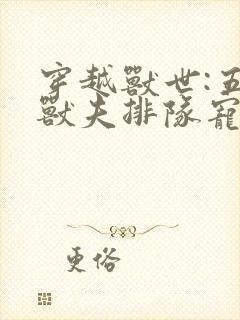 穿越獸世:五
獸夫排隊寵
更俗